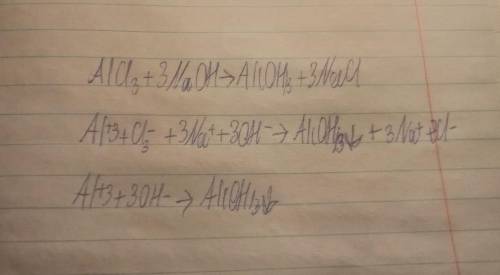 AlCl₃+3NaOH→Al(OH)₃+3NaCl
Al+3+Cl₃⁻+3Na⁺+3OH⁻→Al(OH)₃↓+3Na⁺+3Cl⁻
Al+3+3OH⁻→Al(OH)₃↓